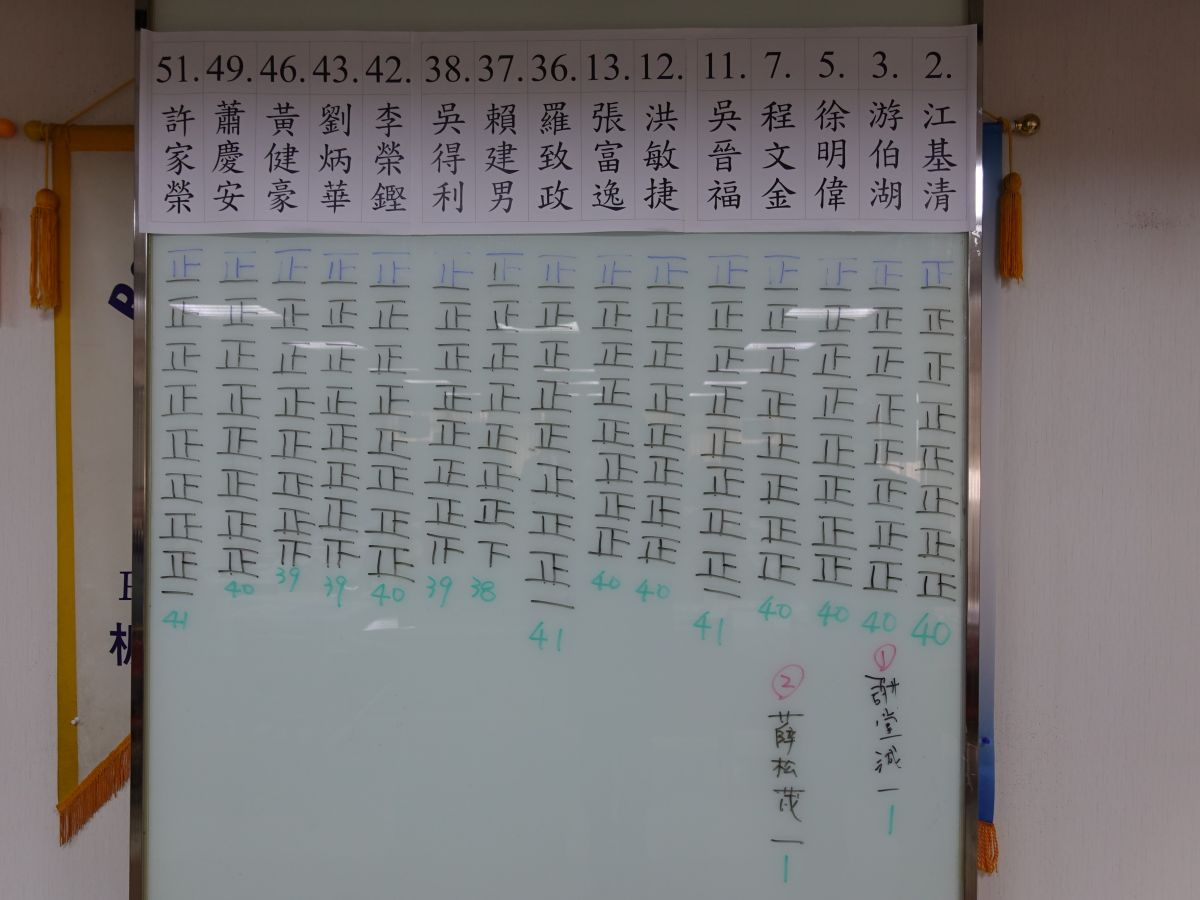 2. 江基清
3. 游伯湖
5. 徐明偉
7. 程文金
11. 吳晉福
12. 洪敏捷
13. 張富逸
36. 羅致政
37. 賴建男
38. 吳得利
42. 李榮鏗
43. 劉炳華
46. 黃健豪
49. 蕭慶安
51. 許家榮
正正正正正正正正 40
正正正正正正正正 40
正正正正正正正正 40
正正正正正正正正 40
正正正正正正正正一 41
正正正正正正正正 40
正正正正正正正正 40
正正正正正正正正一 41
正正正正正正正下 38
正正正正正正正 39
正正正正正正正正 40
正正正正正正正 39
正正正正正正正 39
正正正正正正正正 40
正正正正正正正正一 41
① 堂誠 一 1
② 薛松茂 一 1